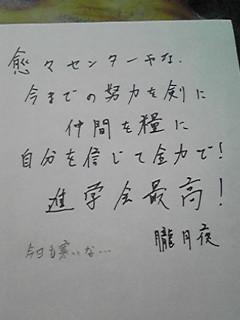 愈々センターやな。
今までの努力を剣に
仲間を糧に
自分を信じて全力で!
進学会最高!
朧月夜
今日も寒いな…